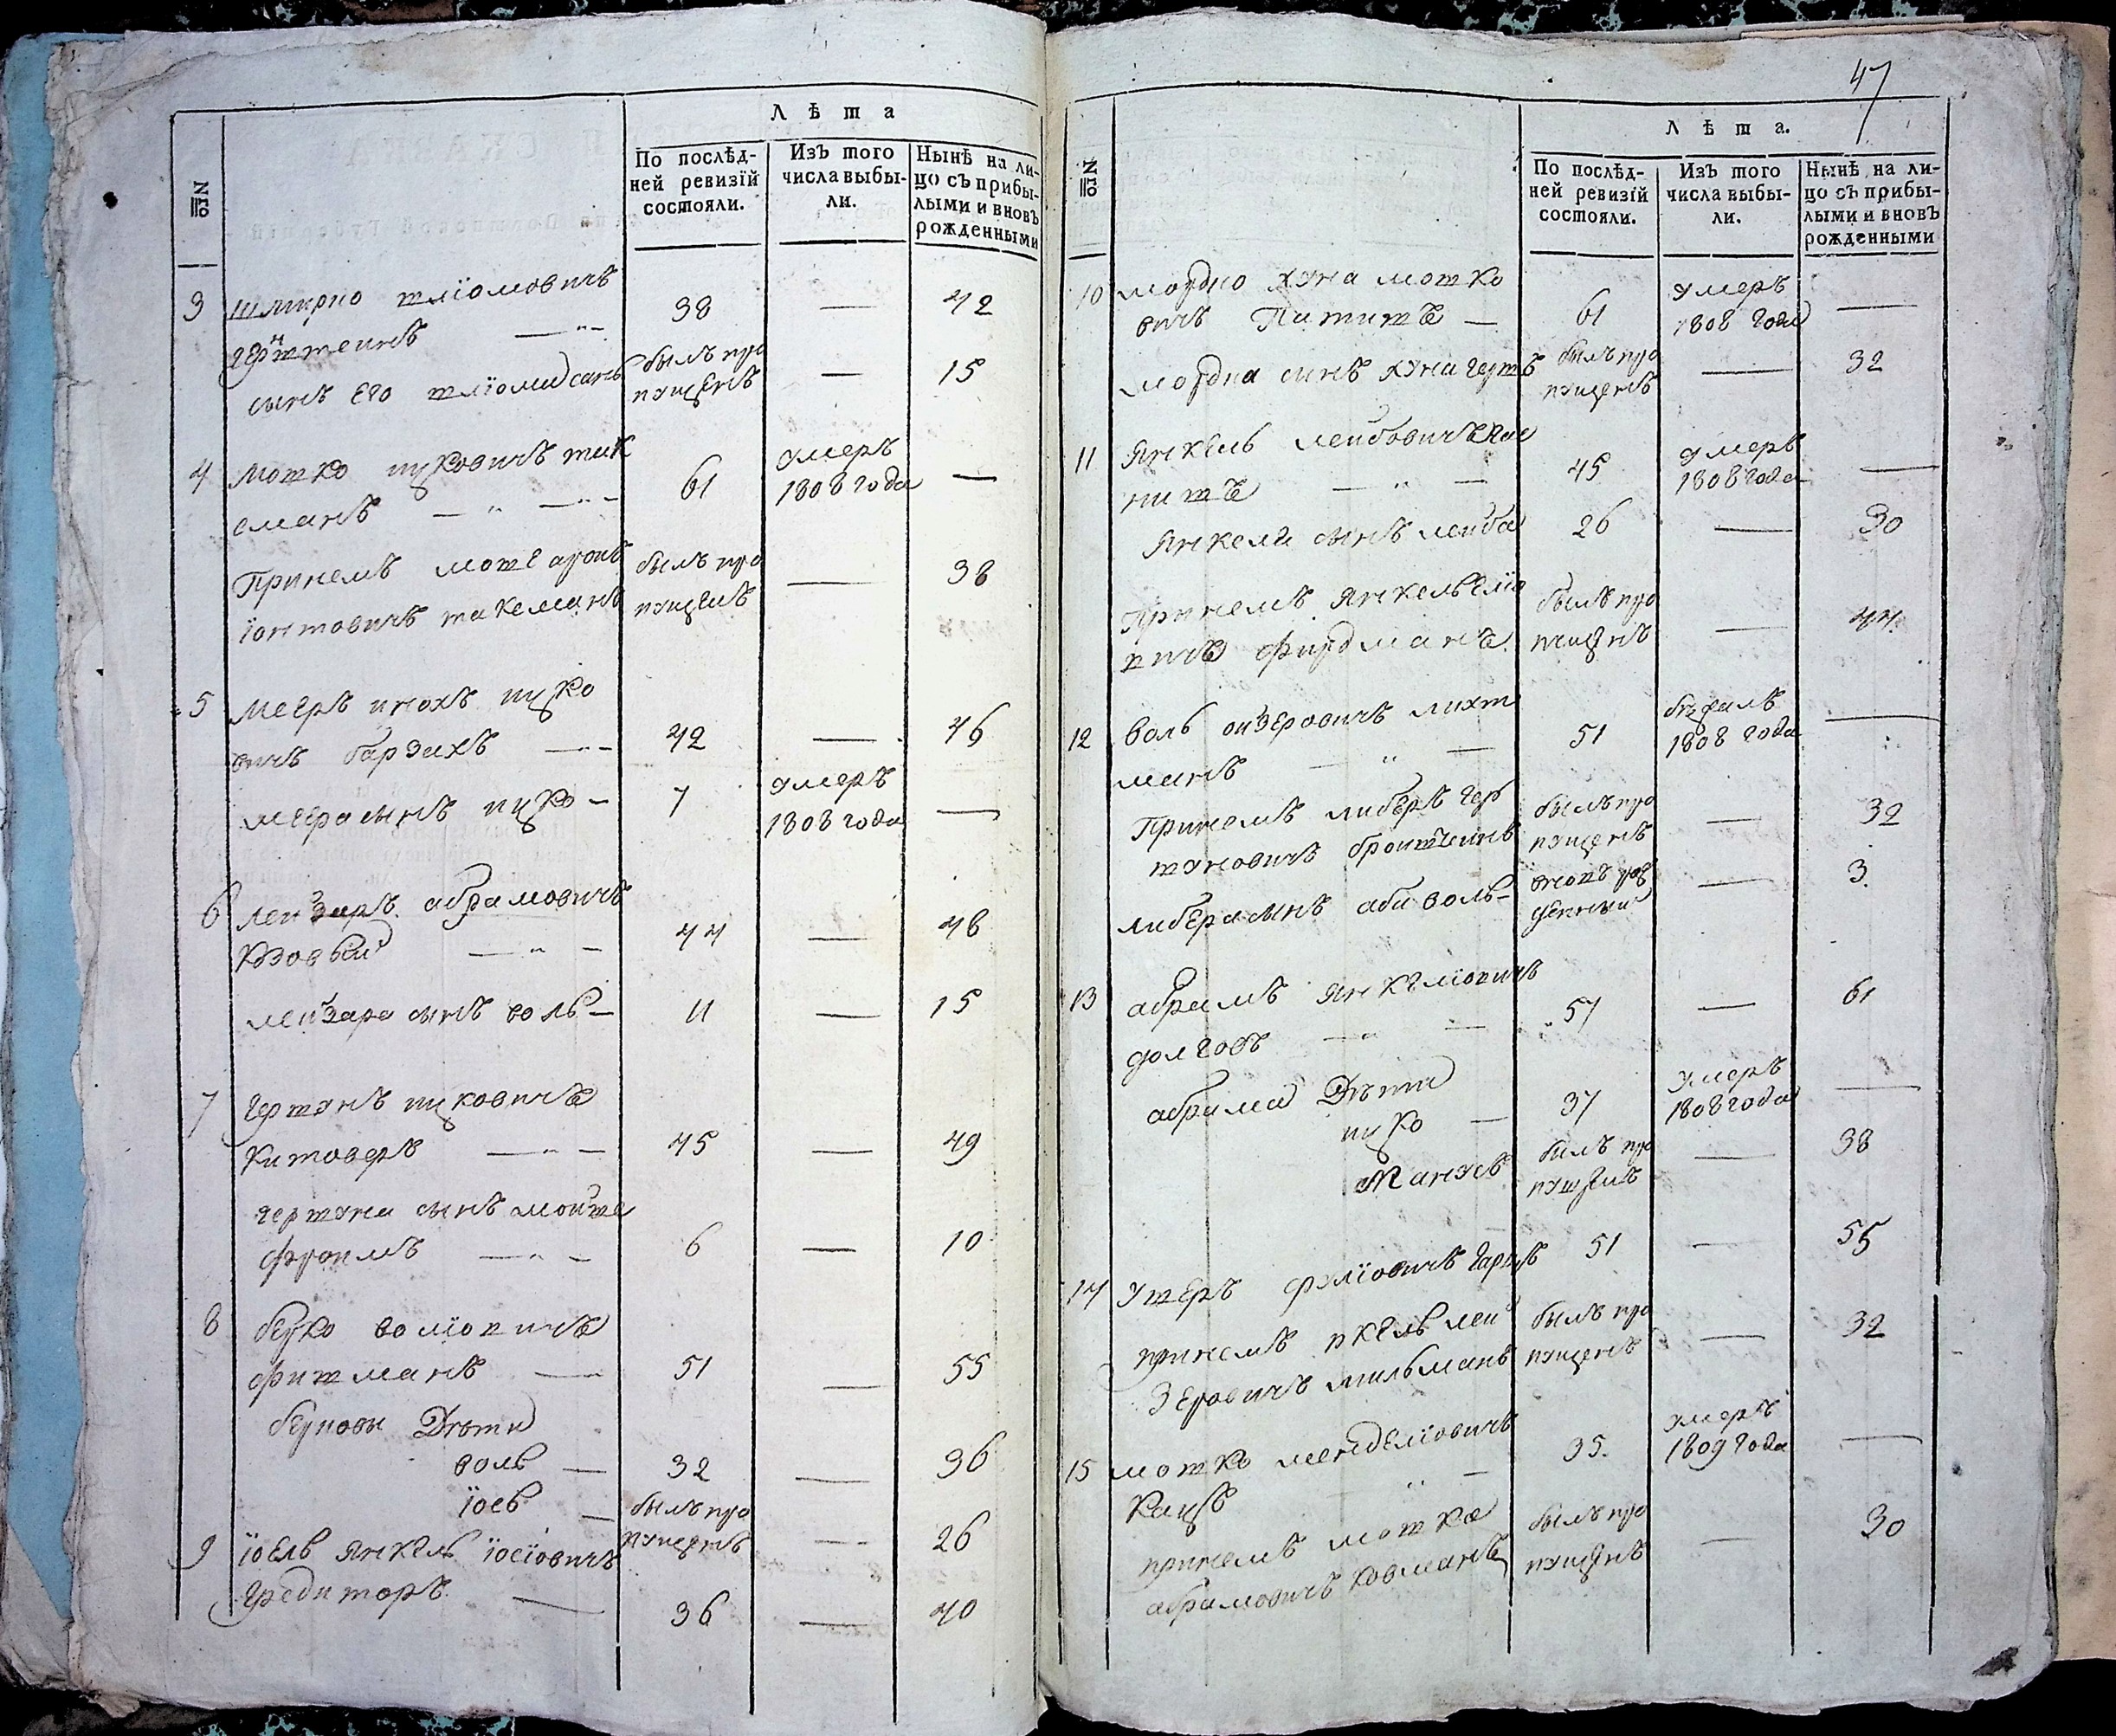 47
Лѣта
№го
По послѣд-
ней ревизїй
состояли.
Изъ того
числа выбы-
ли.
Нынѣ на ли-
цо съ прибы-
лыми и вновь
рожденными
3 Шмирно шліомовичъ
38 — 42
сынъ его шліома
былъ про
пущенъ — 15
4 Мотко ицковичъ так
сманъ
61 умеръ
1808 года —
Принемъ
былъ про
пущенъ — 38
5 Мееръ инохъ ицко
вичъ барзахъ
42 — 46
меера сынъ ицко —
7 умеръ
1808 года —
6 лейзаръ абрамовичъ
44 — 48
лейзара сынъ воль —
11 — 15
7 Гершунъ ицковичъ
Китоверъ
45 — 49
гершуна сынъ мойше
фроимъ
6 — 10
8 берко воліовичъ
фишманъ —
51 — 55
берковы Дѣти
воль —
32 — 36
їось —
былъ про
пущенъ — 26
9 їоель янкель їосїовичъ
Кредиторъ —
36 — 40
Лѣта.
№го
По послѣд-
ней ревизїй
состояли.
Изъ того
числа выбы-
ли.
Нынѣ на ли-
цо съ прибы-
лыми и вновь
рожденными
10 мордко хуна мотко
вичъ —
61 умеръ
1808 года —
сынъ хуна
былъ про
пущенъ — 32
11 Янкель лейбовичъ
45 умеръ
1808 года —
Янкеля сынъ лейба
26 — 30
Принемъ янкель
вичъ фурманъ.
былъ про
пущенъ — 44.
12 воль ойзеровичъ лихт
манъ —
51
1808 года —
Принемъ либеръ гер
шуновичъ бронштеинъ
былъ про
пущенъ — 32
либера сынъ аба воль —
вновь рож
денный — 3.
13 абрамъ янкеліовичъ
долговъ —
57 — 61
абрама Дѣти
ицко —
37 умеръ
1808 года —
Манусъ
былъ про
пущенъ — 38
14 Ушеръ
51 — 55
принемъ лей
зеровичъ мильманъ
былъ про
пущенъ — 32
15 мотко менделїовичъ
Кацъ —
35. умеръ
1809 года —
принемъ мотка
абрамовичъ ковманъ
былъ про
пущенъ — 30